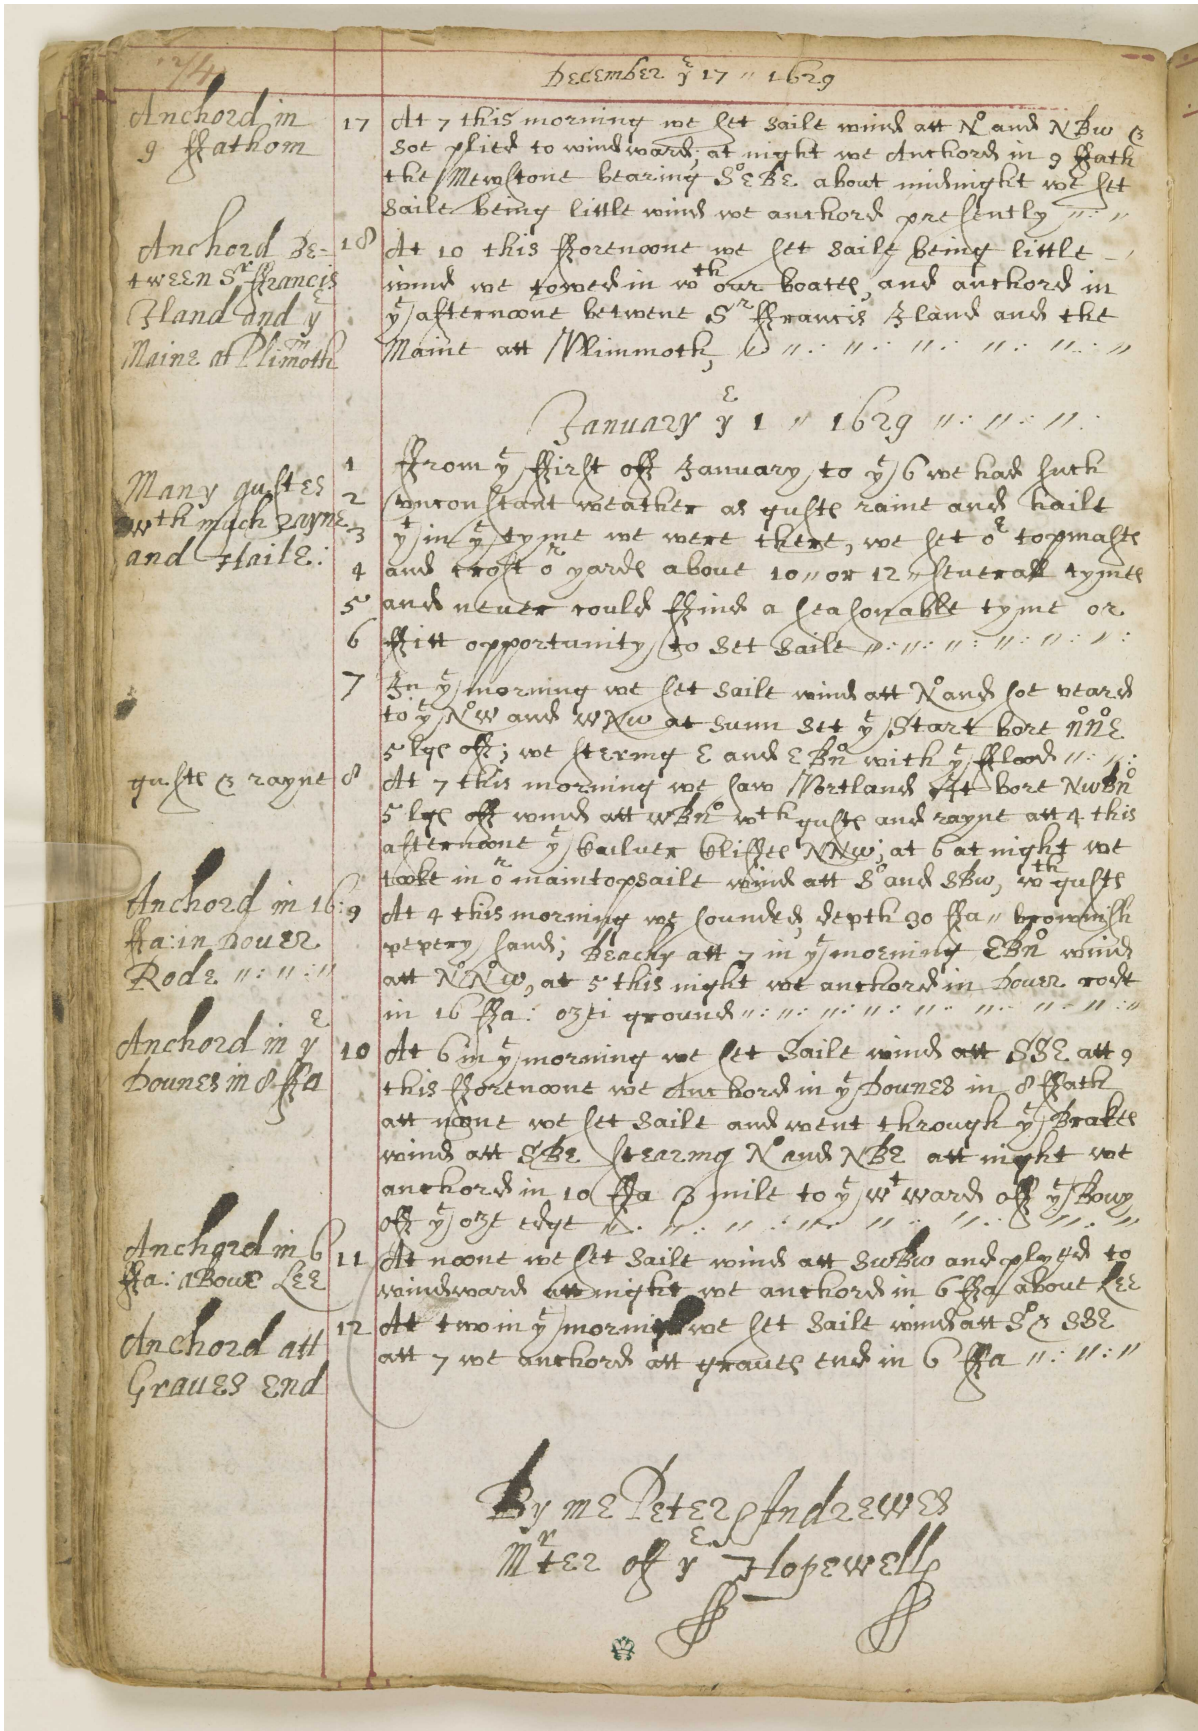 174
December yᵉ 17 " 1629
Anchord in
9 ffathom
17 At 7 this morning we set saile wind att Nº and NBW &
soe plied to windward; at night we Anchord in 9 ffath
the Mewstone bearing SºEBE about midnight we set
saile being little wind we anchord presently
Anchord Be-
tween Sʳ ffrancis
Iland and yᵉ
Maine at Plimᵐoth
18 At 10 this fforenoone we set saile being little
wind we towed in wᵗʰ our boates, and anchord in
yᵉ afternoone betwene Sʳ ffrancis Iland and the
Maine att Plimmoth,
January yᵉ 1 " 1629
Many gustes
wᵗʰ much rayne
and Haile:
1 ffrom yᵉ ffirst off January to yᵉ 6 we had such
2 vnconstant weather as gustes raine and haile
3 yᵗ in yᵉ tyme we were there, we set oʳ topmastes
4 and crost oʳ yardes about 10 " or 12 " seuerall tymes
5 and neuer could ffind a seasonable tyme or
6 ffitt opportunity to set saile
7 In yᵉ morning we set saile wind att Nº and soe veard
to yᵉ NºW and WNW at sunn set yᵉ Start bore NºNºE
5 lges off; we stering E and EBNº with yᵉ fflood
guste & rayne
8 At 7 this morning we saw Portland It bore NWBNº
5 lges off wind att WBNº wᵗʰ gustes and rayne att 4 this
afternoone yᵉ bailuer bliffes NNW; at 6 at night we
tooke in oʳ maintopsaile wind att Sº and SBW, wᵗʰ gustes
Anchord in 16:
ffa: in Douer
Rode
9 At 4 this morning we sounded, depth 30 ffa " brownish
pepery sand; Beachy att 7 in yᵉ morning EBNº wind
att NºNºW, at 5 this night we anchord in Douer rode
in 16 ffa: ozei ground
Anchord in yᵉ
Dounes in 8 ffa
10 At 6 in yᵉ morning we set Saile wind att SSE att 9
this fforenoone we Anchord in yᵉ Dounes in 8 ffath
att noone we set saile and went through yᵉ Brakes
wind att SBE stearing Nº and NBE att night we
anchord in 10 ffa 3 mile to yᵉ wᵗward off yᵉ Bouy
off yᵉ oze edge
Anchord in 6
ffa: aboue Lee
11 At noone we set saile wind att SWBW and plyed to
windward att night we anchord in 6 ffa aboue Lee
Anchord att
Graues End
12 At two in yᵉ morning we set saile wind att Sº & SSE
att 7 we anchord att graues end in 6 ffa
By me Peter Andrewes
Mʳter off yᵉ Hopewell